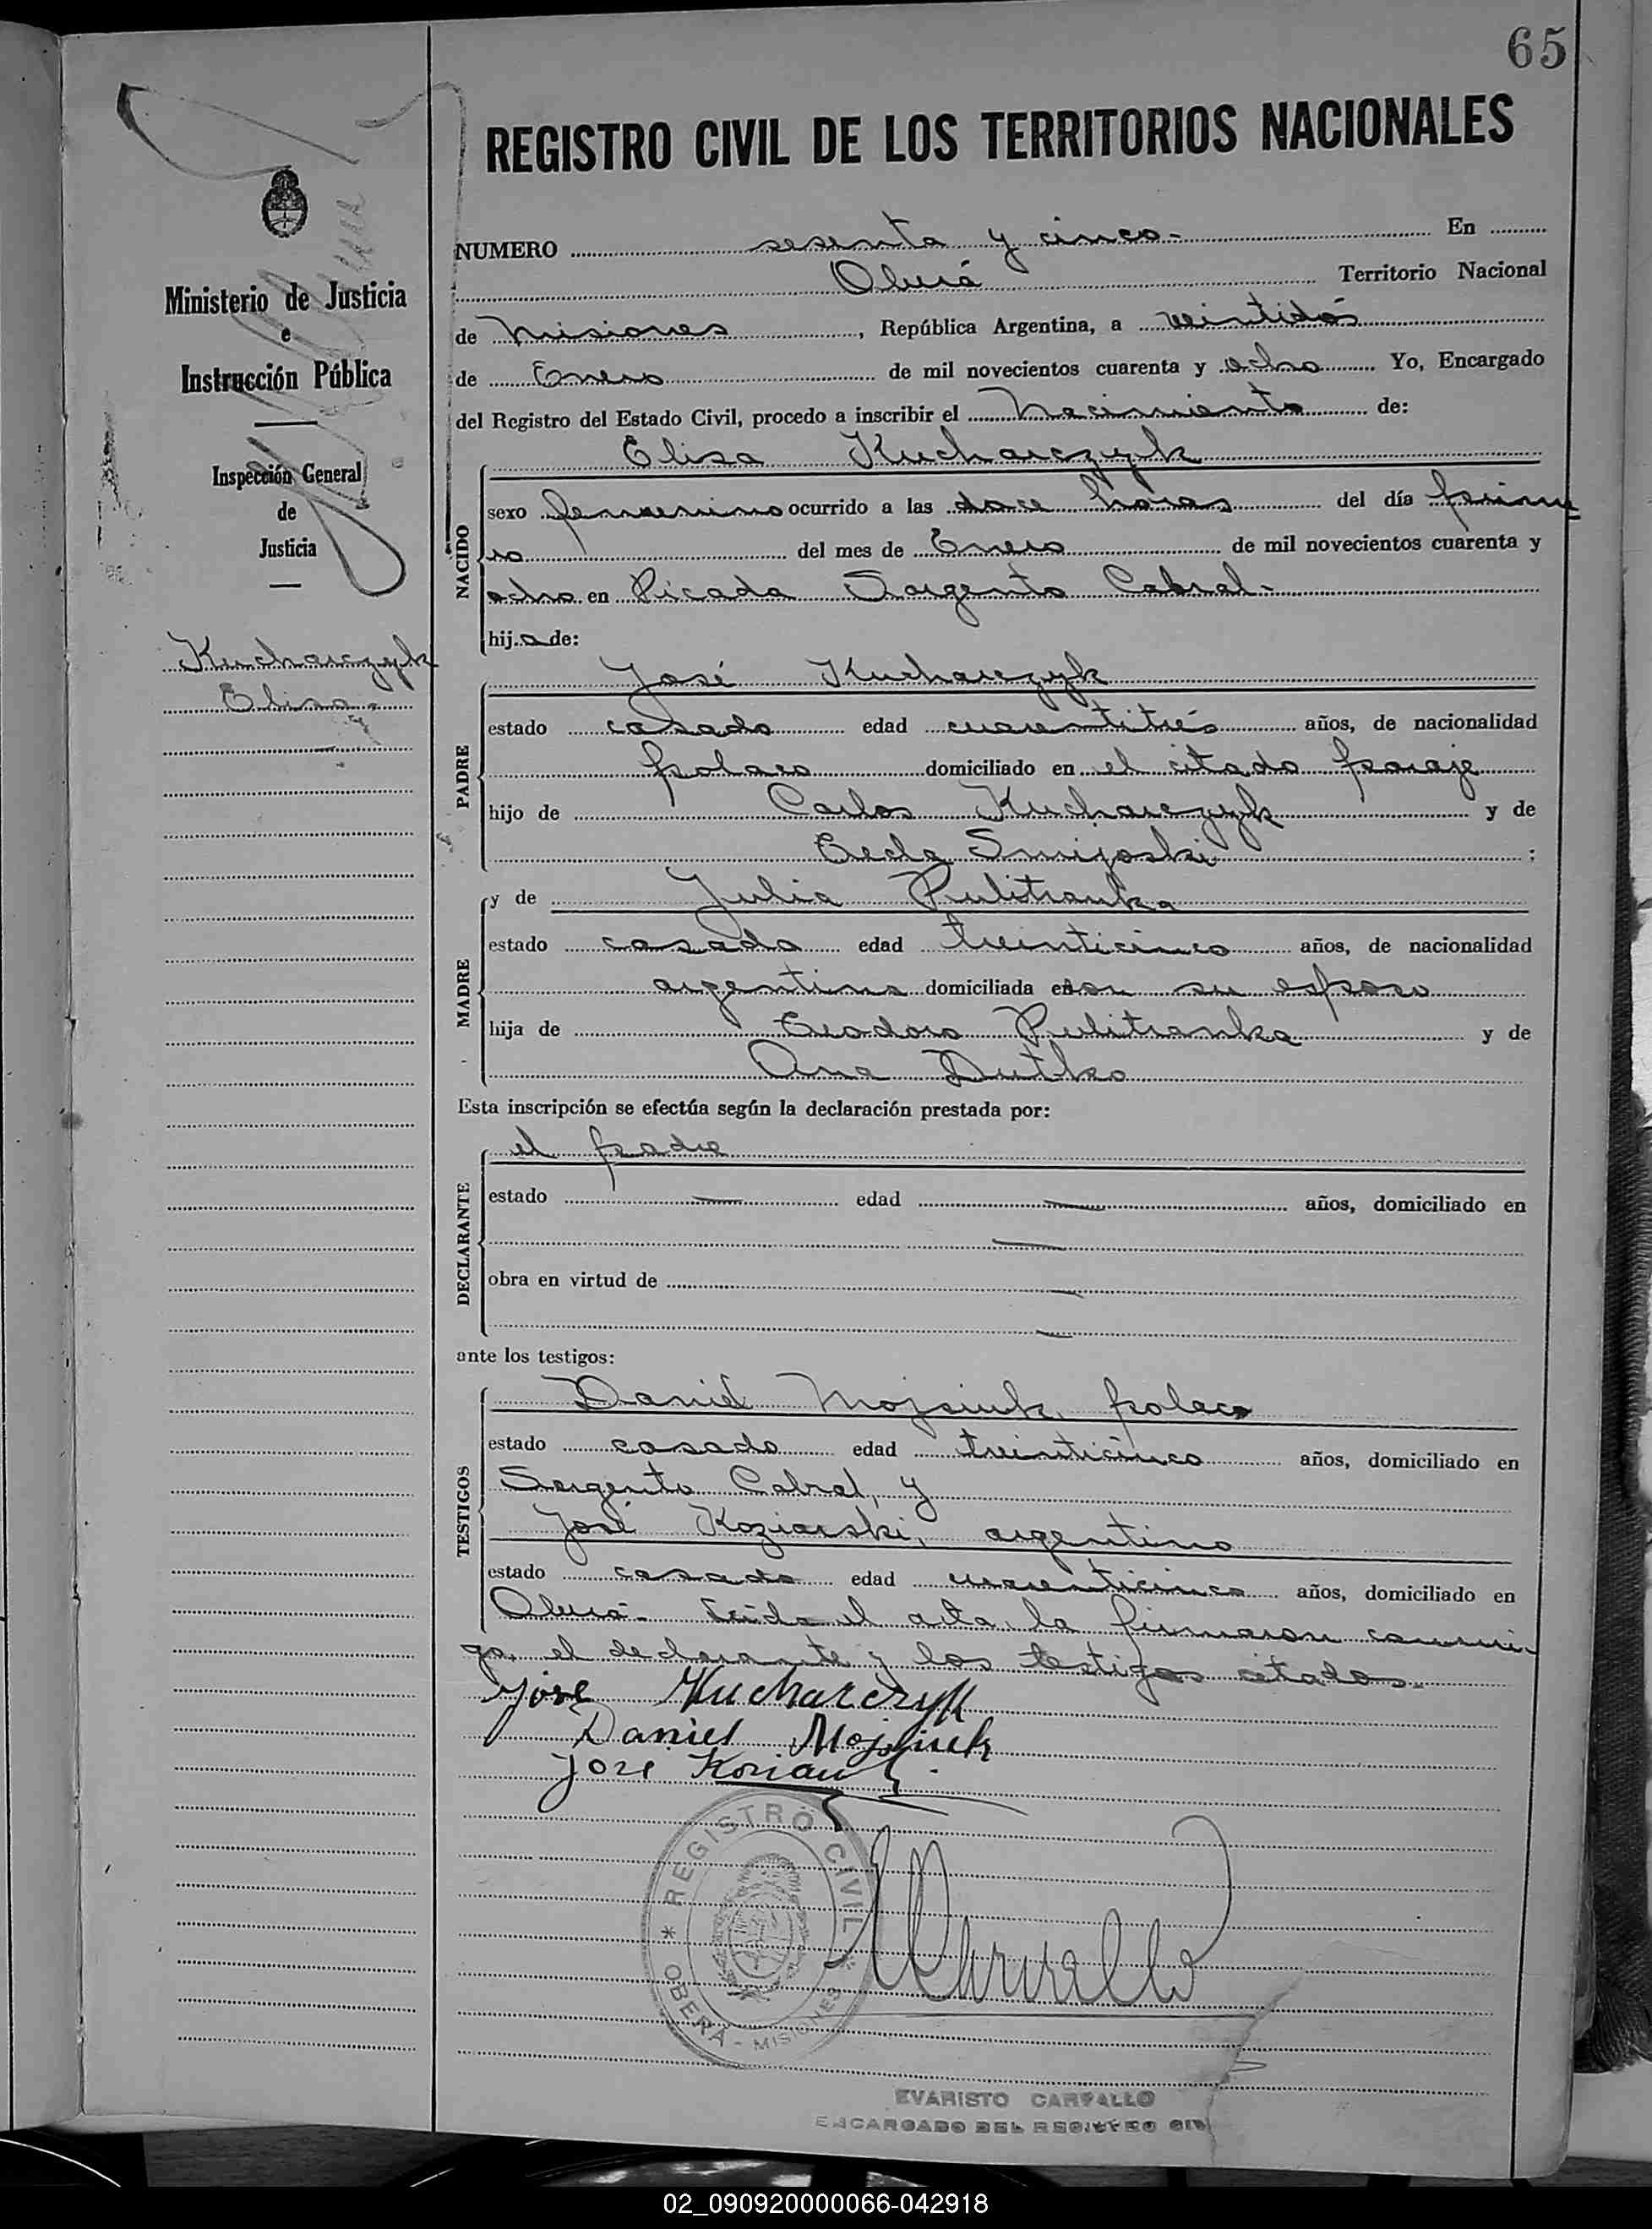 65
REGISTRO CIVIL DE LOS TERRITORIOS NACIONALES
Ministerio de Justicia
e
Instrucción Pública
Inspección General
de
Justicia
Kucharczyk
Elisa.-
NUMERO sesenta y cinco.- En
Oberá Territorio Nacional
de Misiones, República Argentina, a veintidós
de Enero de mil novecientos cuarenta y ocho Yo, Encargado
del Registro del Estado Civil, procedo a inscribir el Nacimiento de:
Elisa Kucharczyk
NACIDO
sexo femenino ocurrido a las doce horas del día prime
ro del mes de Enero de mil novecientos cuarenta y
ocho en Picada Sargento Cabral.-
hija de:
José Kucharczyk
PADRE
estado casado edad cuarentitrés años, de nacionalidad
polaco domiciliado en el citado paraje
hijo de Carlos Kucharczyk y de
Smijoski;
y de Julia Pulitranka
MADRE
estado casada edad treinticinco años, de nacionalidad
argentina domiciliada con su esposo
hija de Teodoro Pulitranka y de
Ana Dutko
Esta inscripción se efectúa según la declaración prestada por:
el padre
DECLARANTE
estado — edad — años, domiciliado en
—
obra en virtud de —
—
ante los testigos:
Daniel Mojsiuk, polaco
TESTIGOS
estado casado edad treinticinco años, domiciliado en
Sargento Cabral, y
José Koziarski, argentino
estado casado edad cuarenticinco años, domiciliado en
Oberá.- Leída el acta, la firmaron conmi-
go, el declarante y los testigos citados.-
José Kucharczyk
Daniel Mojsiuk
José
REGISTRO CIVIL
* OBERÁ - MISIONES *
ECarvallo
EVARISTO CARVALLO
ENCARGADO DEL REGISTRO CIV
02_090920000066-042918